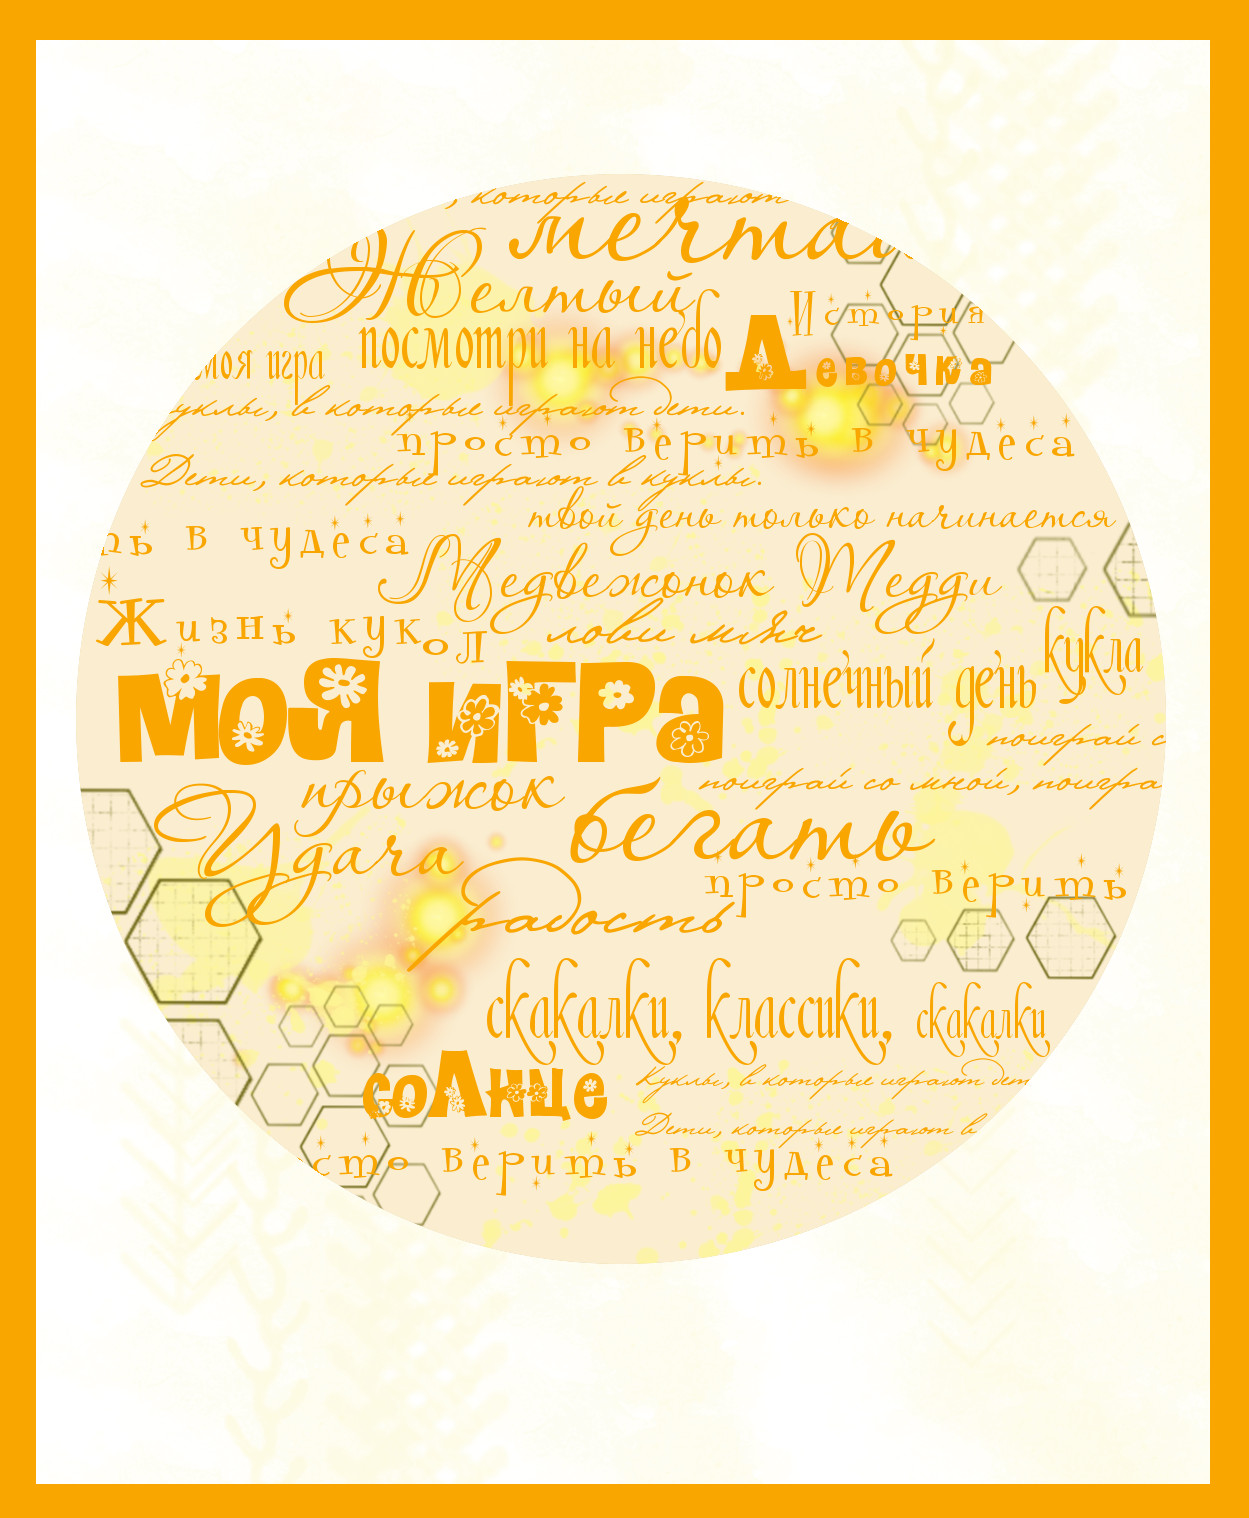 , которые играют
мечтай
Желтый
История
посмотри на небо
моя игра
Девочка
уклы, в которые играют дети.
просто верить в чудеса
Дети, которые играют в куклы.
твой день только начинается
ть в чудеса
Медвежонок Тедди
Жизнь кукол
лови мяч
кукла
солнечный день
моя игра
поиграй с
прыжок
поиграй со мной, поигра
Удача
бегать
просто верить
радость
скакалки, классики, скакалки
солнце
Куклы, в которые играют дет
Дети, которые играют в
сто верить в чудеса